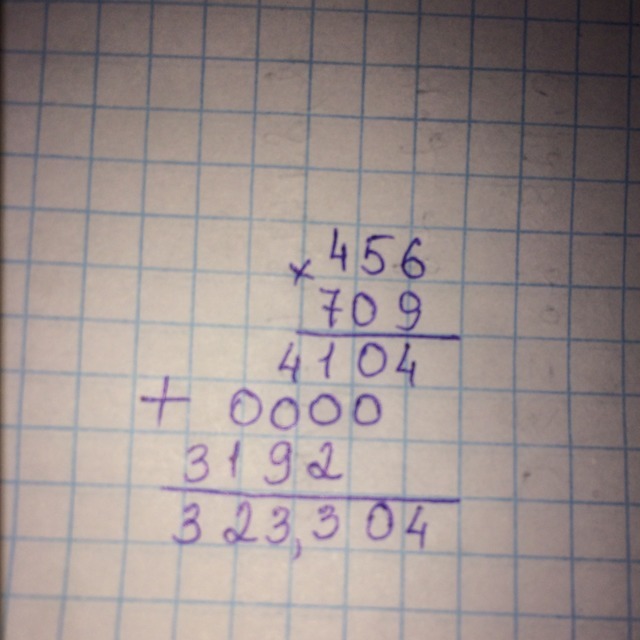 456
× 709
4104
+ 0000
3192
323,304